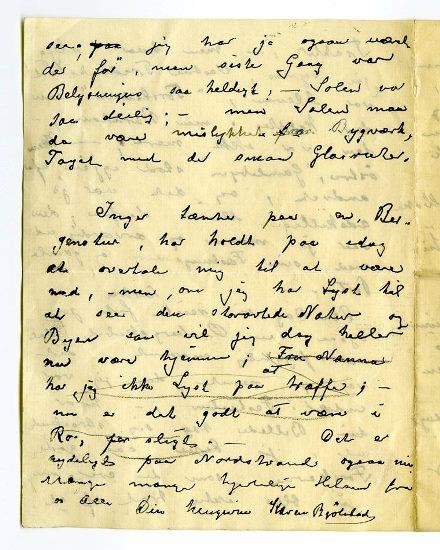 seer, paa jeg har jo ogsaa været
der før", men siste Gang var
Belysningen saa heldigt; – Solen var
saa deilig; – men Solen maa
da være mislykket fra Bygværk,
Taget med de smaa Glasruder.
Inger tænker paa en Ber-
genstur, har holdt paa idag
at overtale mig til at være
med, – men, om jeg har Lyst til
at see den storartede Natur og
Byen saa vil jeg dog heller
nu være hjemme; Fru Nanna
har jeg ikke Lyst paa at træffe; –
nu er det godt at være i
Ro, for sligt. – Det er
nydeligt paa Nordstrand ogsaa nu
mange mange hjertelige Hilsner fra
os Alle Din hengivne Karen Bjølstad